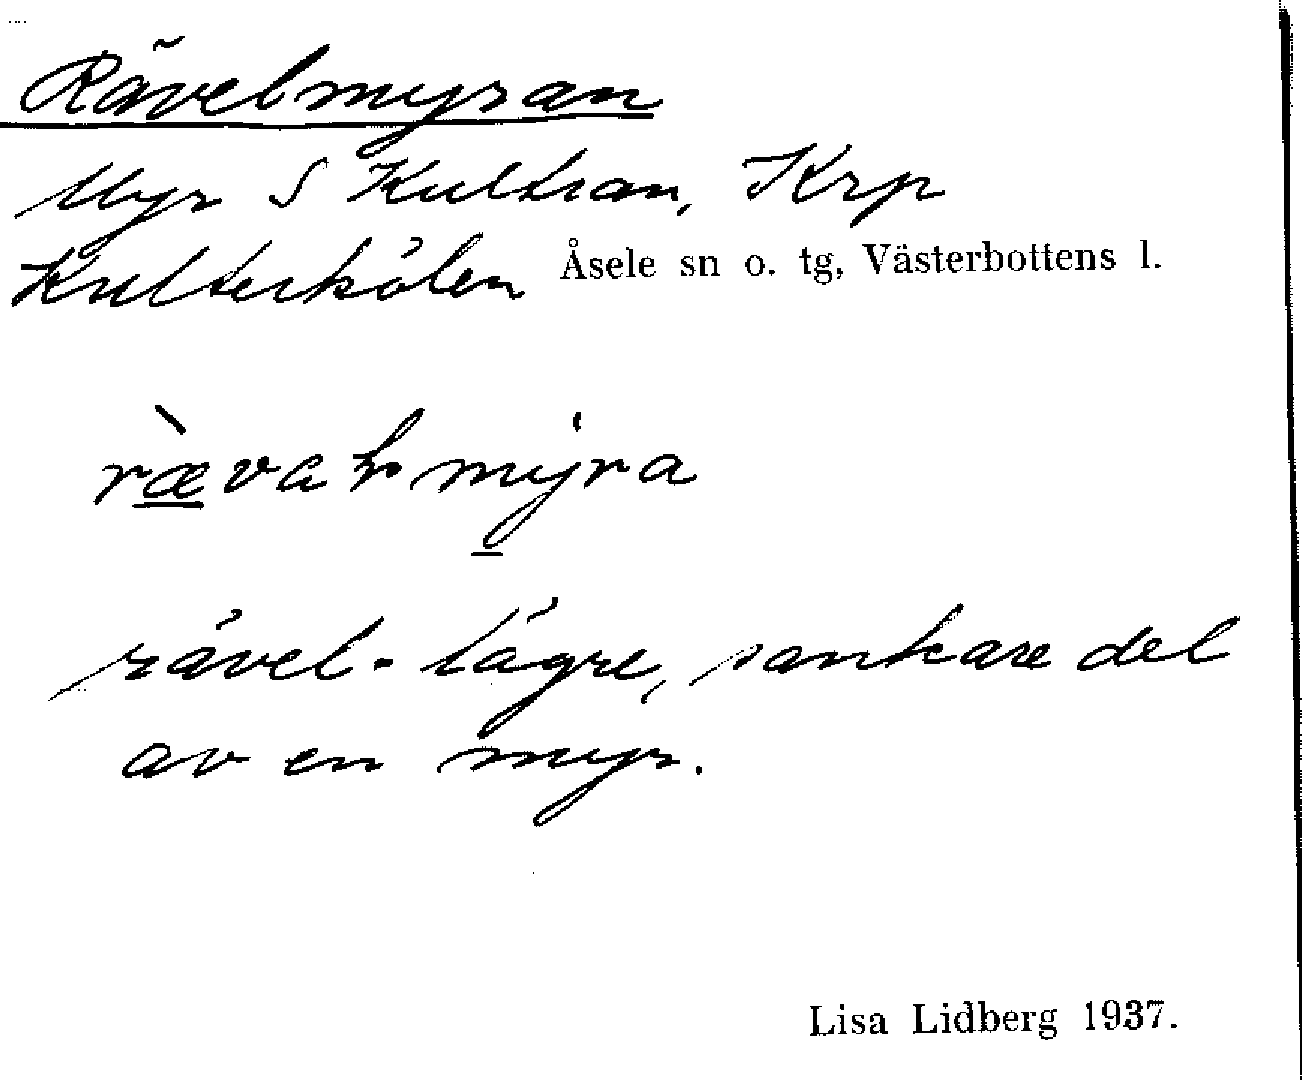 Rävelmyran
Myr S Kultran, Krp
Kulterkölen Åsele sn o. tg, Västerbottens l.
rävel - lägre, sankare del
av en myr.
Lisa Lidberg 1937.